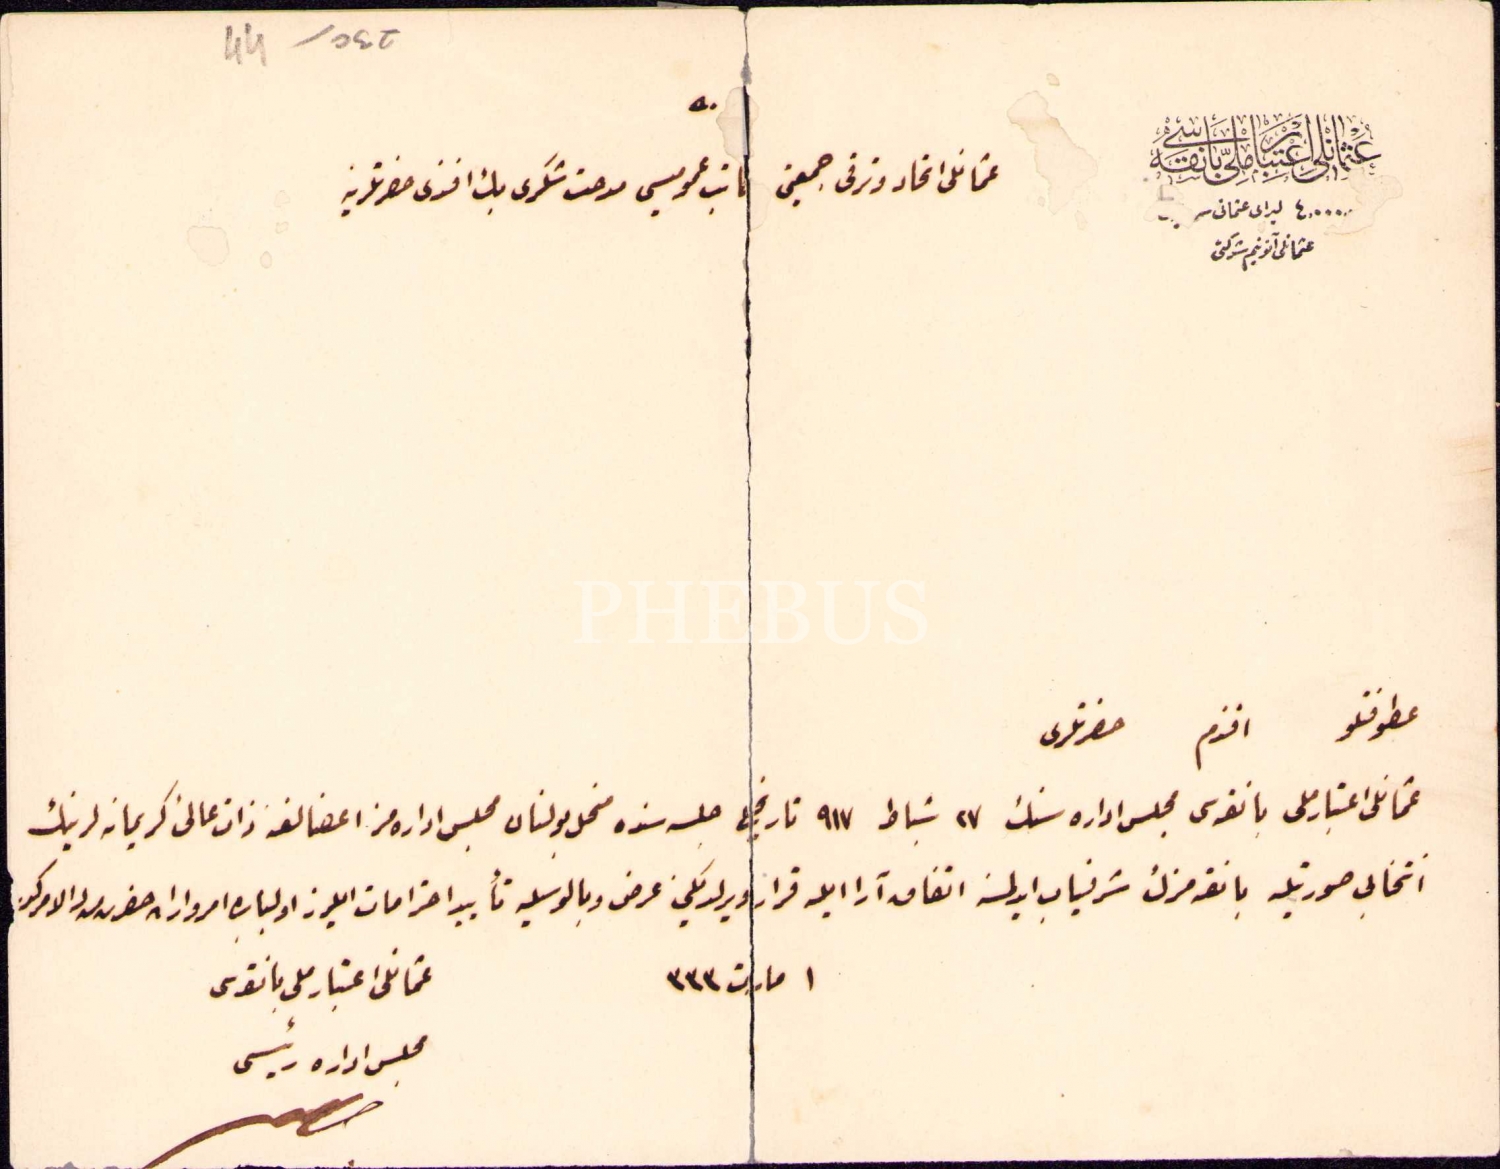 عثمانلی اعتبار ملی بانقه سی
٤٫٠٠٠٫٠٠٠ لیرای عثمانی
عثمانلی آنونیم شرکتی
44 / 230
عثمانلی اتحاد و ترقی جمعیتی کاتب عمومیسی مدحت شکری بك افندی حضرتلرینه
عطوفتلو افندم حضرتلری
عثمانلی اعتبار ملی بانقه سی مجلس اداره سنك ٢٧ شباط ٩١٧ تاریخلی جلسه سنده منحل بولنان مجلس اداره مز اعضالغنه ذات عالئ کریمانه لرینك
انتخابی صورتیله بانقه مزك شرفیاب ایدلمسنه اتفاق آرا ایله قرار ویرلدیکنی عرض و بالوسیله تأیید احترامات ایلرز اولبابده امر و اراده حضرت من له الامرکدر
١ مارت ٣٣٣
عثمانلی اعتبار ملی بانقه سی
مجلس اداره رئیسی
PHEBUS